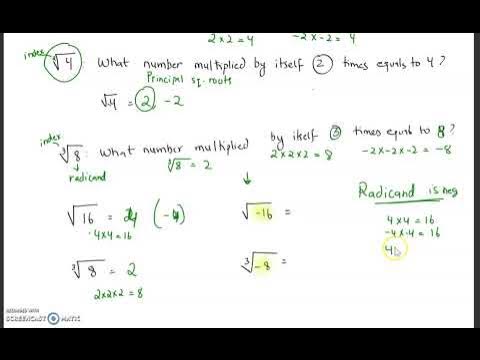 2 x 2 = 4 -2 x -2 = 4
index
√4 : What number multiplied by itself 2 times equals to 4?
Principal sq. roots
√4 = 2, -2
index
³√8 : What number multiplied by itself 3 times equals to 8?
³√8 = 2 2 x 2 x 2 = 8 -2 x -2 x -2 = -8
radicand
Radicand is neg
√16 = 4 (-4) √-16 =
4 x 4 = 16
4 x 4 = 16
-4 x -4 = 16
4
³√8 = 2 ³√-8 =
2 x 2 x 2 = 8
RECORDED WITH
SCREENCAST MATIC